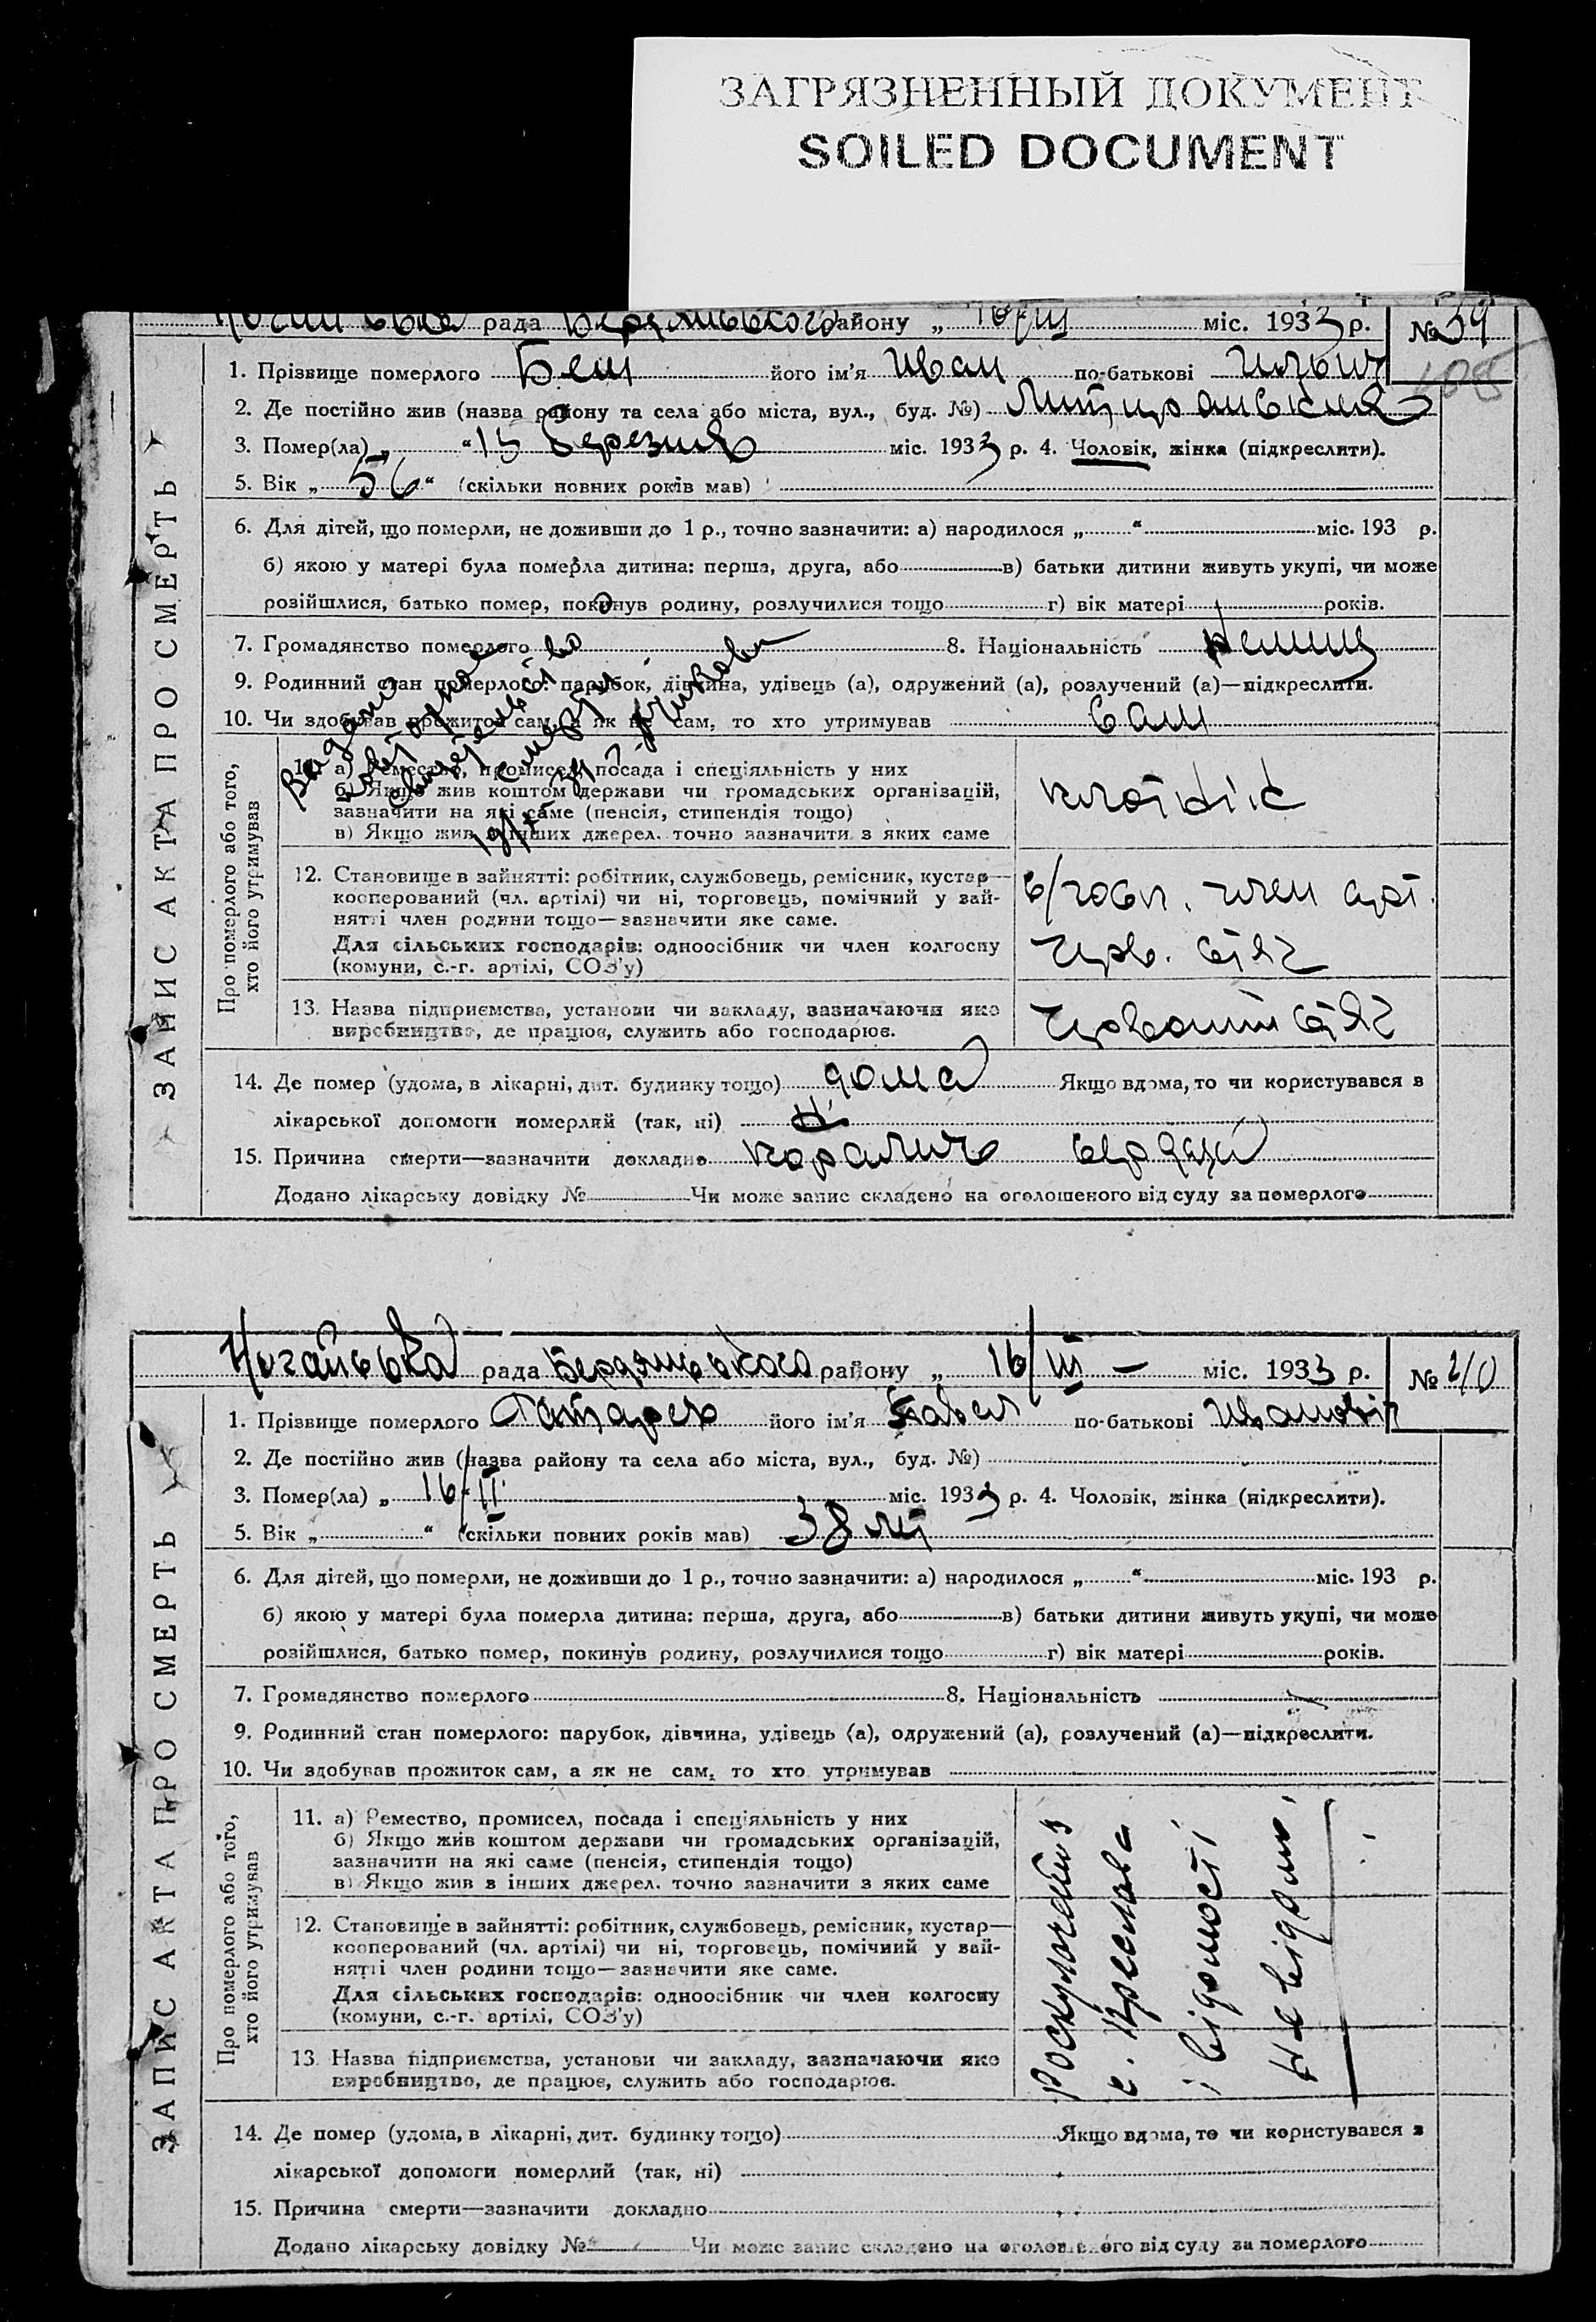 ЗАГРЯЗНЕННЫЙ ДОКУМЕНТ
SOILED DOCUMENT
рада району „ міс. 1933 р. № 39
1. Прізвище померлого його ім'я Иван по-батькові
2. Де постійно жив (назва району та села або міста, вул., буд. №)
3. Помер(ла) „ “ 15 березня міс. 1933 р. 4. Чоловік, жінка (підкреслити).
5. Вік „ 56 “ (скільки повних років мав)
6. Для дітей, що померли, не доживши до 1 р., точно зазначити: а) народилося „ “ міс. 193 р.
б) якою у матері була померла дитина: перша, друга, або в) батьки дитини живуть укупі, чи може
розійшлися, батько помер, покинув родину, розлучилися тощо г) вік матері років.
7. Громадянство померлого 8. Національність
9. Родинний стан померлого: парубок, дівчина, удівець (а), одружений (а), розлучений (а)—підкреслити.
10. Чи здобував прожиток сам, а як не сам, то хто утримував сам
Про померлого або того,
хто його утримував
11. а) Ремество, промисел, посада і спеціяльність у них
б) Якщо жив коштом держави чи громадських організацій,
зазначити на які саме (пенсія, стипендія тощо)
в) Якщо жив з інших джерел. точно зазначити з яких саме
плотнік
12. Становище в зайнятті: робітник, службовець, ремісник, кустар—
кооперований (чл. артілі) чи ні, торговець, помічний у зай-
нятті член родини тощо—зазначити яке саме.
Для сільських господарів: одноосібник чи член колгоспу
(комуни, с.-г. артілі, СОЗ'у)
член
13. Назва підприємства, установи чи закладу, зазначаючи яке
виробництво, де працює, служить або господарює.
14. Де помер (удома, в лікарні, дит. будинку тощо) дома Якщо вдома, то чи користувався з
лікарської допомоги померлий (так, ні) ні
15. Причина смерти—зазначити докладно
Додано лікарську довідку № Чи може запис складено на оголошеного від суду за померлого
ЗАПИС АКТА ПРО СМЕРТЬ
Ногайська рада Бердянського району „ 16/III — міс. 1933 р. № 210
1. Прізвище померлого його ім'я Павел по-батькові Иванович
2. Де постійно жив (назва району та села або міста, вул., буд. №)
3. Помер(ла) „ 16/II міс. 1933 р. 4. Чоловік, жінка (підкреслити).
5. Вік „ “ (скільки повних років мав) 38 літ
6. Для дітей, що померли, не доживши до 1 р., точно зазначити: а) народилося „ “ міс. 193 р.
б) якою у матері була померла дитина: перша, друга, або в) батьки дитини живуть укупі, чи може
розійшлися, батько помер, покинув родину, розлучилися тощо г) вік матері років.
7. Громадянство померлого 8. Національність
9. Родинний стан померлого: парубок, дівчина, удівець (а), одружений (а), розлучений (а)—підкреслити.
10. Чи здобував прожиток сам, а як не сам, то хто утримував
Про померлого або того,
хто його утримував
11. а) Ремество, промисел, посада і спеціяльність у них
б) Якщо жив коштом держави чи громадських організацій,
зазначити на які саме (пенсія, стипендія тощо)
в) Якщо жив з інших джерел. точно зазначити з яких саме
12. Становище в зайнятті: робітник, службовець, ремісник, кустар—
кооперований (чл. артілі) чи ні, торговець, помічний у зай-
нятті член родини тощо—зазначити яке саме.
Для сільських господарів: одноосібник чи член колгоспу
(комуни, с.-г. артілі, СОЗ'у)
13. Назва підприємства, установи чи закладу, зазначаючи яке
виробництво, де працює, служить або господарює.
с. Преслава
відомості
не відомо
14. Де помер (удома, в лікарні, дит. будинку тощо) Якщо вдома, то чи користувався з
лікарської допомоги померлий (так, ні)
15. Причина смерти—зазначити докладно
Додано лікарську довідку № Чи може запис складено на оголошеного від суду за померлого
ЗАПИС АКТА ПРО СМЕРТЬ